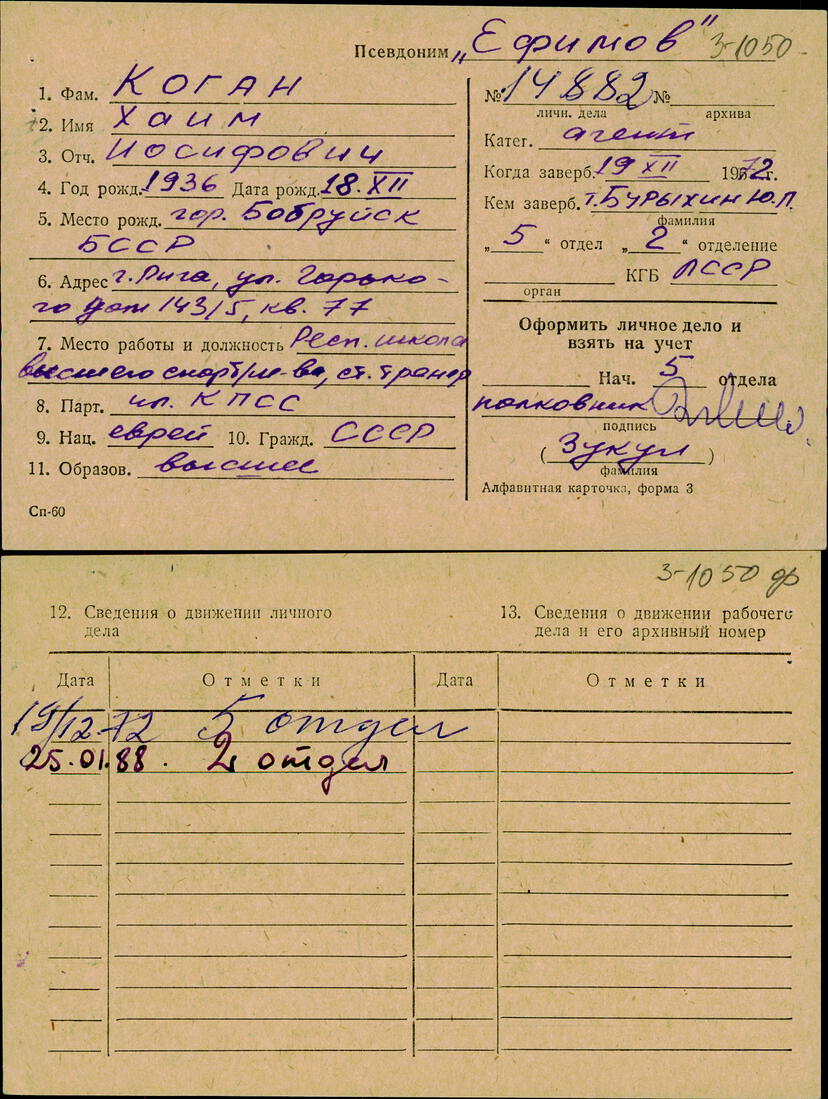 Псевдоним „Ефимов" 3-1050
1. Фам. КОГАН
2. Имя Хаим
3. Отч. Иосифович
4. Год рожд. 1936 Дата рожд. 18.XII
5. Место рожд. гор. Бобруйск
БССР
6. Адрес г. Рига, ул. Горько-
го дом 143/5, кв. 77
7. Место работы и должность Респ. школа
высшего спорт/м-ва, ст. тренер
8. Парт. чл. КПСС
9. Нац. еврей 10. Гражд. СССР
11. Образов. высшее
Сп-60
№ 14882 № 
личн. дела архива
Катег. агент
Когда заверб. 19 XII 1972г.
Кем заверб. т. Бурыхин Ю.П.
фамилия
„5“ отдел „2“ отделение
КГБ ЛССР
орган
Оформить личное дело и
взять на учет
Нач. 5 отдела
полковник
подпись
(Зукул)
фамилия
Алфавитная карточка, форма 3
3-1050 ф
12. Сведения о движении личного
дела
13. Сведения о движении рабочего
дела и его архивный номер
Дата Отметки Дата Отметки
19/12-72 5 отдел
25.01.88. 2 отдел